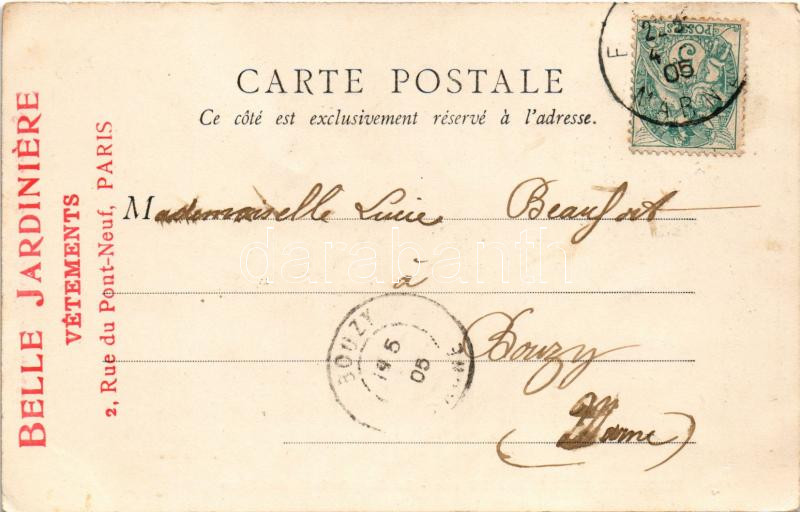 CARTE POSTALE
Ce côté est exclusivement réservé à l'adresse.
BELLE JARDINIÈRE
VÊTEMENTS
2, Rue du Pont-Neuf, PARIS
Mademoiselle Lucie Beaufort
à
Bouzy
(Marne)
BOUZY
19 5
05
05
MARN
darabanth